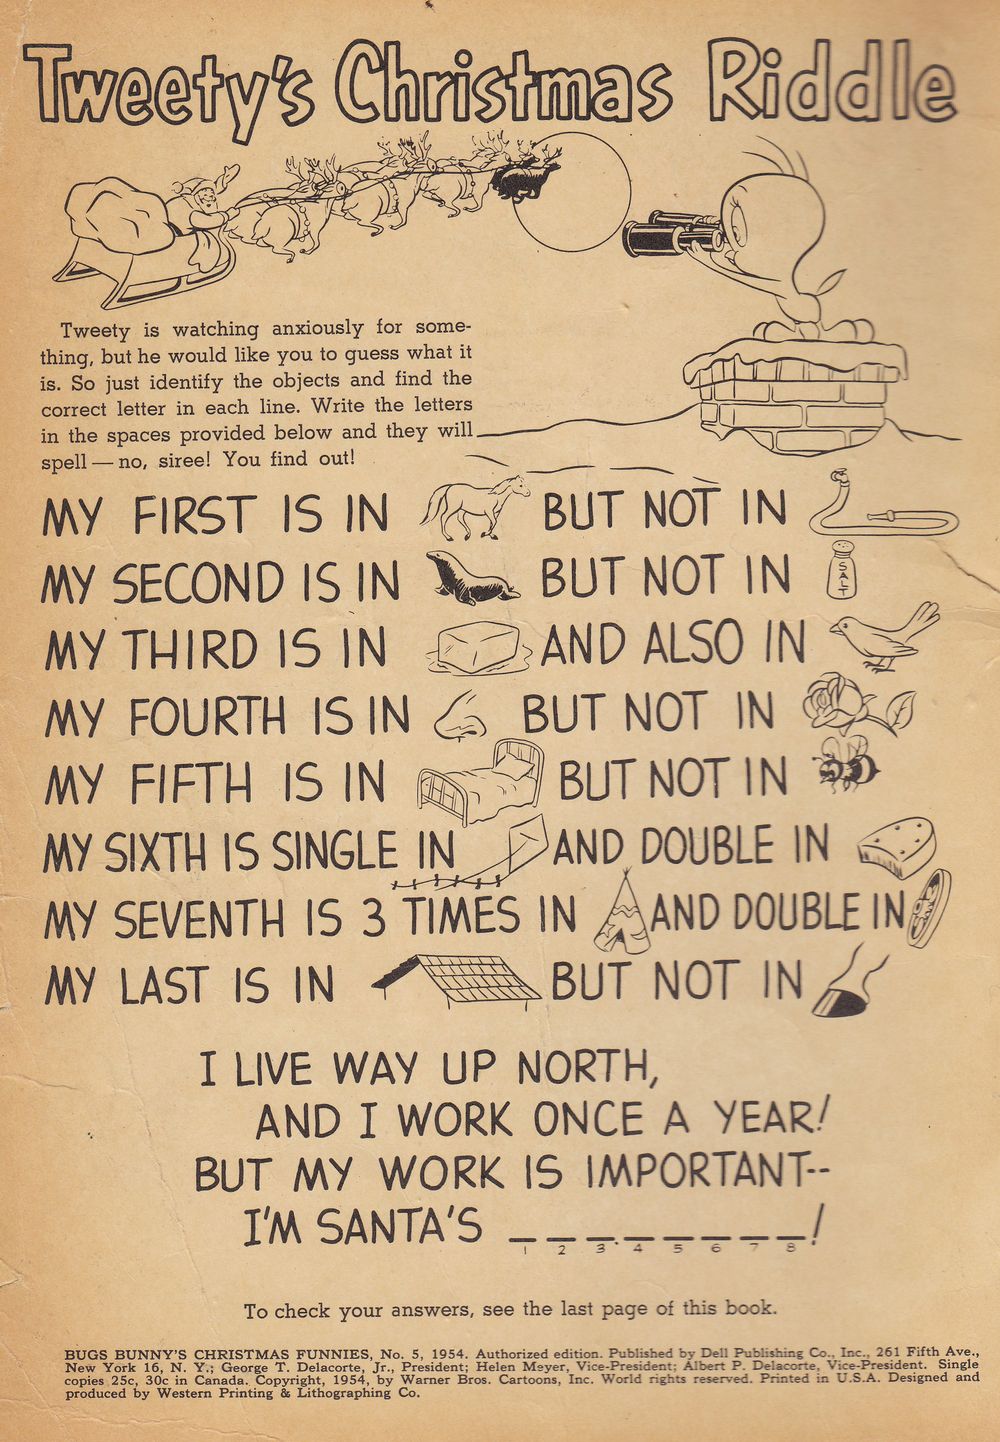 Tweety's Christmas Riddle
Tweety is watching anxiously for some-
thing, but he would like you to guess what it
is. So just identify the objects and find the
correct letter in each line. Write the letters
in the spaces provided below and they will
spell — no, siree! You find out!
MY FIRST IS IN BUT NOT IN
MY SECOND IS IN BUT NOT IN
SALT
MY THIRD IS IN AND ALSO IN
MY FOURTH IS IN BUT NOT IN
MY FIFTH IS IN BUT NOT IN
MY SIXTH IS SINGLE IN AND DOUBLE IN
MY SEVENTH IS 3 TIMES IN AND DOUBLE IN
MY LAST IS IN BUT NOT IN
I LIVE WAY UP NORTH,
AND I WORK ONCE A YEAR!
BUT MY WORK IS IMPORTANT--
I'M SANTA'S _ _ _ _ _ _ _ _!
1 2 3 4 5 6 7 8
To check your answers, see the last page of this book.
BUGS BUNNY'S CHRISTMAS FUNNIES, No. 5, 1954. Authorized edition. Published by Dell Publishing Co., Inc., 261 Fifth Ave.,
New York 16, N. Y.; George T. Delacorte, Jr., President; Helen Meyer, Vice-President; Albert P. Delacorte, Vice-President. Single
copies 25c, 30c in Canada. Copyright, 1954, by Warner Bros. Cartoons, Inc. World rights reserved. Printed in U.S.A. Designed and
produced by Western Printing & Lithographing Co.